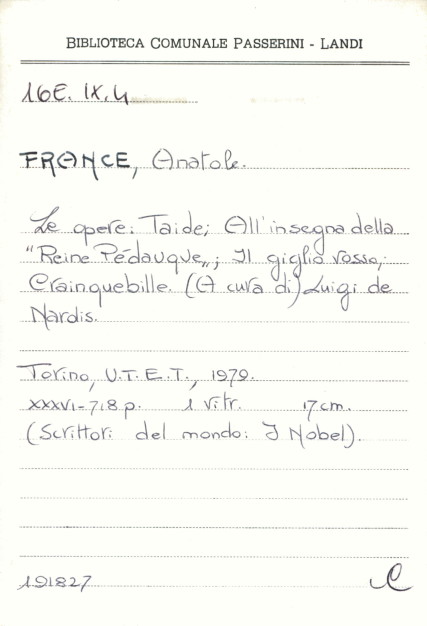 BIBLIOTECA COMUNALE PASSERINI - LANDI
16E. IX.4
FRANCE, Anatole.
Le opere: Taide; All'insegna della
"Reine Pédauque„; Il giglio rosso;
Crainquebille. (A cura di) Luigi de
Nardis.
Torino, U.T.E.T., 1979.
XXXVI-718 p. 1 vitr. 17 cm.
(Scrittori del mondo: I Nobel).
191827